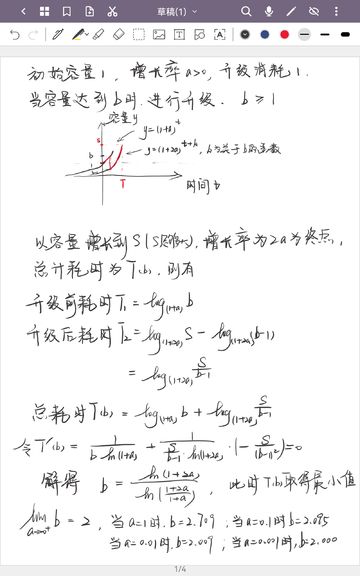 草稿(1)
初始容量1，增长率a>0，升级消耗1.
当容量达到b时，进行升级. b≥1
容量y
y=(1+a)^t
S
y=(1+2a)^{t+h}，h为关于b的函数
b
1
T
时间t
以容量增长到S(S足够大)，增长率为2a为终点，
总计耗时为T(b)，则有
升级前耗时T₁=log_{(1+a)} b
升级后耗时T₂=log_{(1+2a)} S - log_{(1+2a)}(b-1)
=log_{(1+2a)} \frac{S}{b-1}
总耗时T(b)=log_{(1+a)} b + log_{(1+2a)} \frac{S}{b-1}
令T'(b)=\frac{1}{b·ln(1+a)} + \frac{1}{\frac{S}{b-1}·ln(1+2a)}·(-\frac{S}{(b-1)²})=0
解得 b=\frac{ln(1+2a)}{ln(\frac{1+2a}{1+a})}，此时T(b)取得最小值
lim_{a→0⁺} b=2，当a=1时，b=2.709，当a=0.1时b=2.095
当a=0.01时，b=2.009，当a=0.001时，b=2.000
1/4